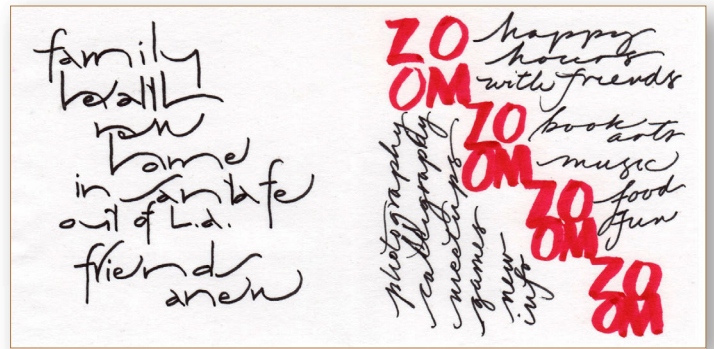 family
health
new
home
in santa fe
out of L.A.
friends
anew
ZO
OM
happy
hours
with friends
ZO
OM
book
arts
music
ZO
OM
food
fun
ZO
OM
photography
calligraphy
meetups
games
new
info